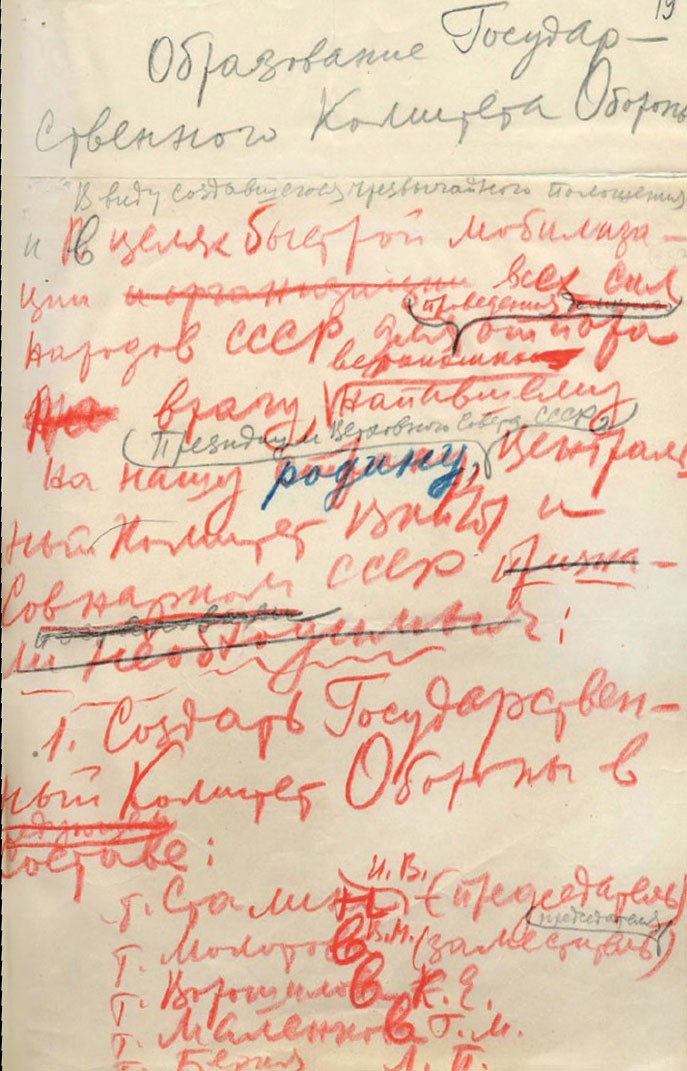 19
Образование Государ-
ственного Комитета Обороны
В виду создавшегося чрезвычайного положения
и В целях быстрой мобилиза-
ции и организации всех сил
проведения
народов СССР для отпора
вероломно
врагу напавшему
Президиум Верховного Совета СССР,
на нашу родину, Централь
ный Комитет ВКП(б) и
Совнарком СССР призна-
постановили
ли необходимым:
1. Создать Государствен-
ный Комитет Обороны в
следующем
составе:
И. В.
т. Сталин (председатель)
председателя
т. Молотов В.М. (заместитель)
т. Ворошилов К.Е.
т. Маленков Г.М.
т. Берия Л.П.